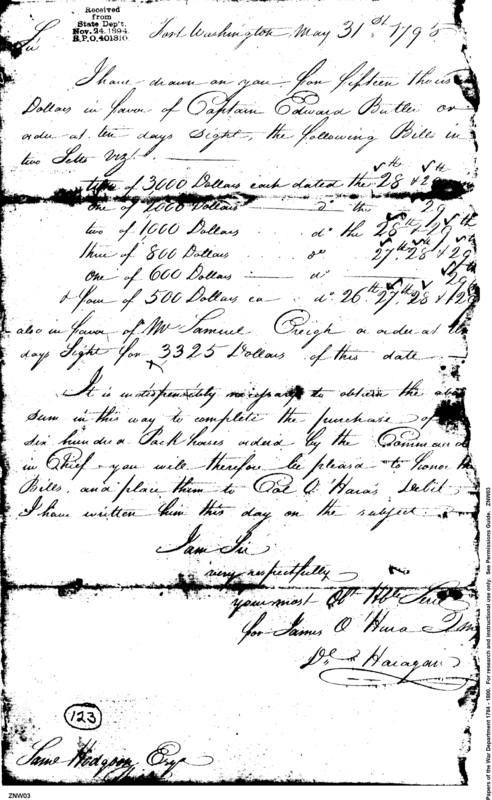 Received
from
State Dep't.
Nov. 24. 1894
R.P.O. 401810
Sir
Fort Washington May 31st 1795
I have drawn on you for fifteen
Dollars in favor of Captain Edward Butler or
order at ten days Sight, the following Bills in
two Setts viz.
of 3,000 Dollars each dated the 28th & 29th
one of 2000 Dollars do the 29
two of 1000 Dollars do the 28th & 29th
three of 800 Dollars do 27th 28th & 29
one of 600 Dollars do 29th
& four of 500 Dollars ea do 26th 27th 28 & 29
also in favor of Mr Samuel Creigh or order at ten
days Sight for 3325 Dollars of this date
It is indispensibly necessary to obtain the
sum in this way to complete the purchase of
six hundred Pack horses orderd by the
in Chief you will therefore be pleasd to honor
Bills, and place them to Col O'Haras Debit
I have written him this day on the subject.
I am Sir
very respectfully
your most Obt Hble
for James O'Hara
Haragan
123
Saml Hodgson Esqr
ZNW03
Papers of the War Department 1784 - 1800. For research and instructional use only. See Permissions Guide. ZNW03